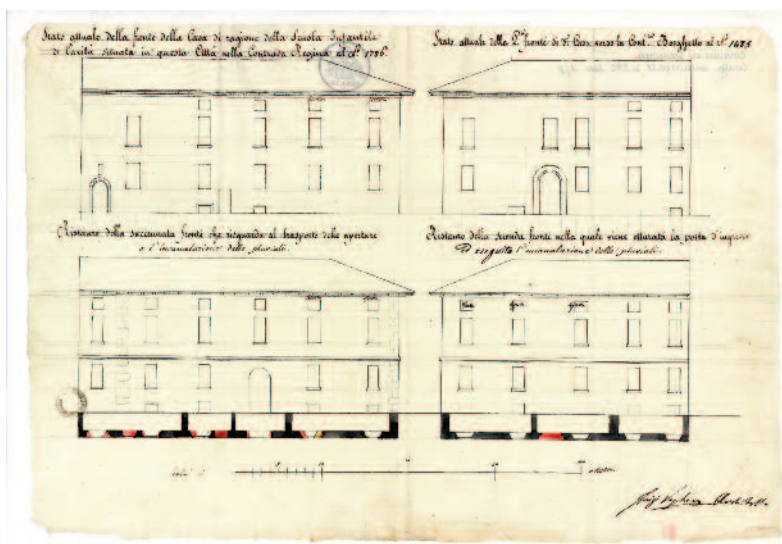 Stato attuale della fronte della Casa di ragione della Scuola Infantile
di Carità situata in questa Città nella Contrada Regina al N.° 1786
Stato attuale della 2.ª fronte di d.ª Casa verso la Cont.ª Borghetto al N.° 1485
Ristauro della succennata fronte che risguarda al trasporto delle aperture
e l'incanalazione delle pluviali.
Ristauro della seconda fronte nella quale viene otturata la porta d'ingresso
ed eseguita l'incanalazione delle pluviali.
Luigi